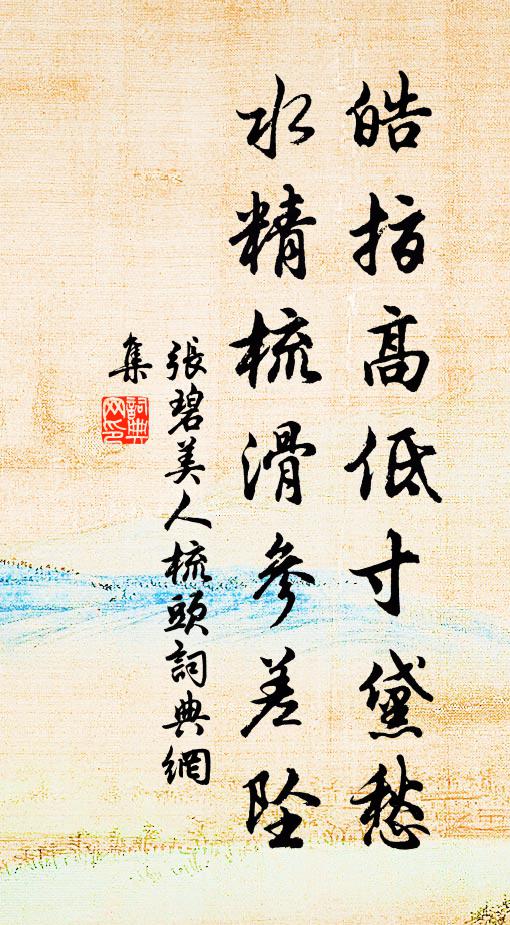 皓指高低寸黛愁
水精梳滑參差墜
張碧美人梳頭詞典網
集
詞典網印